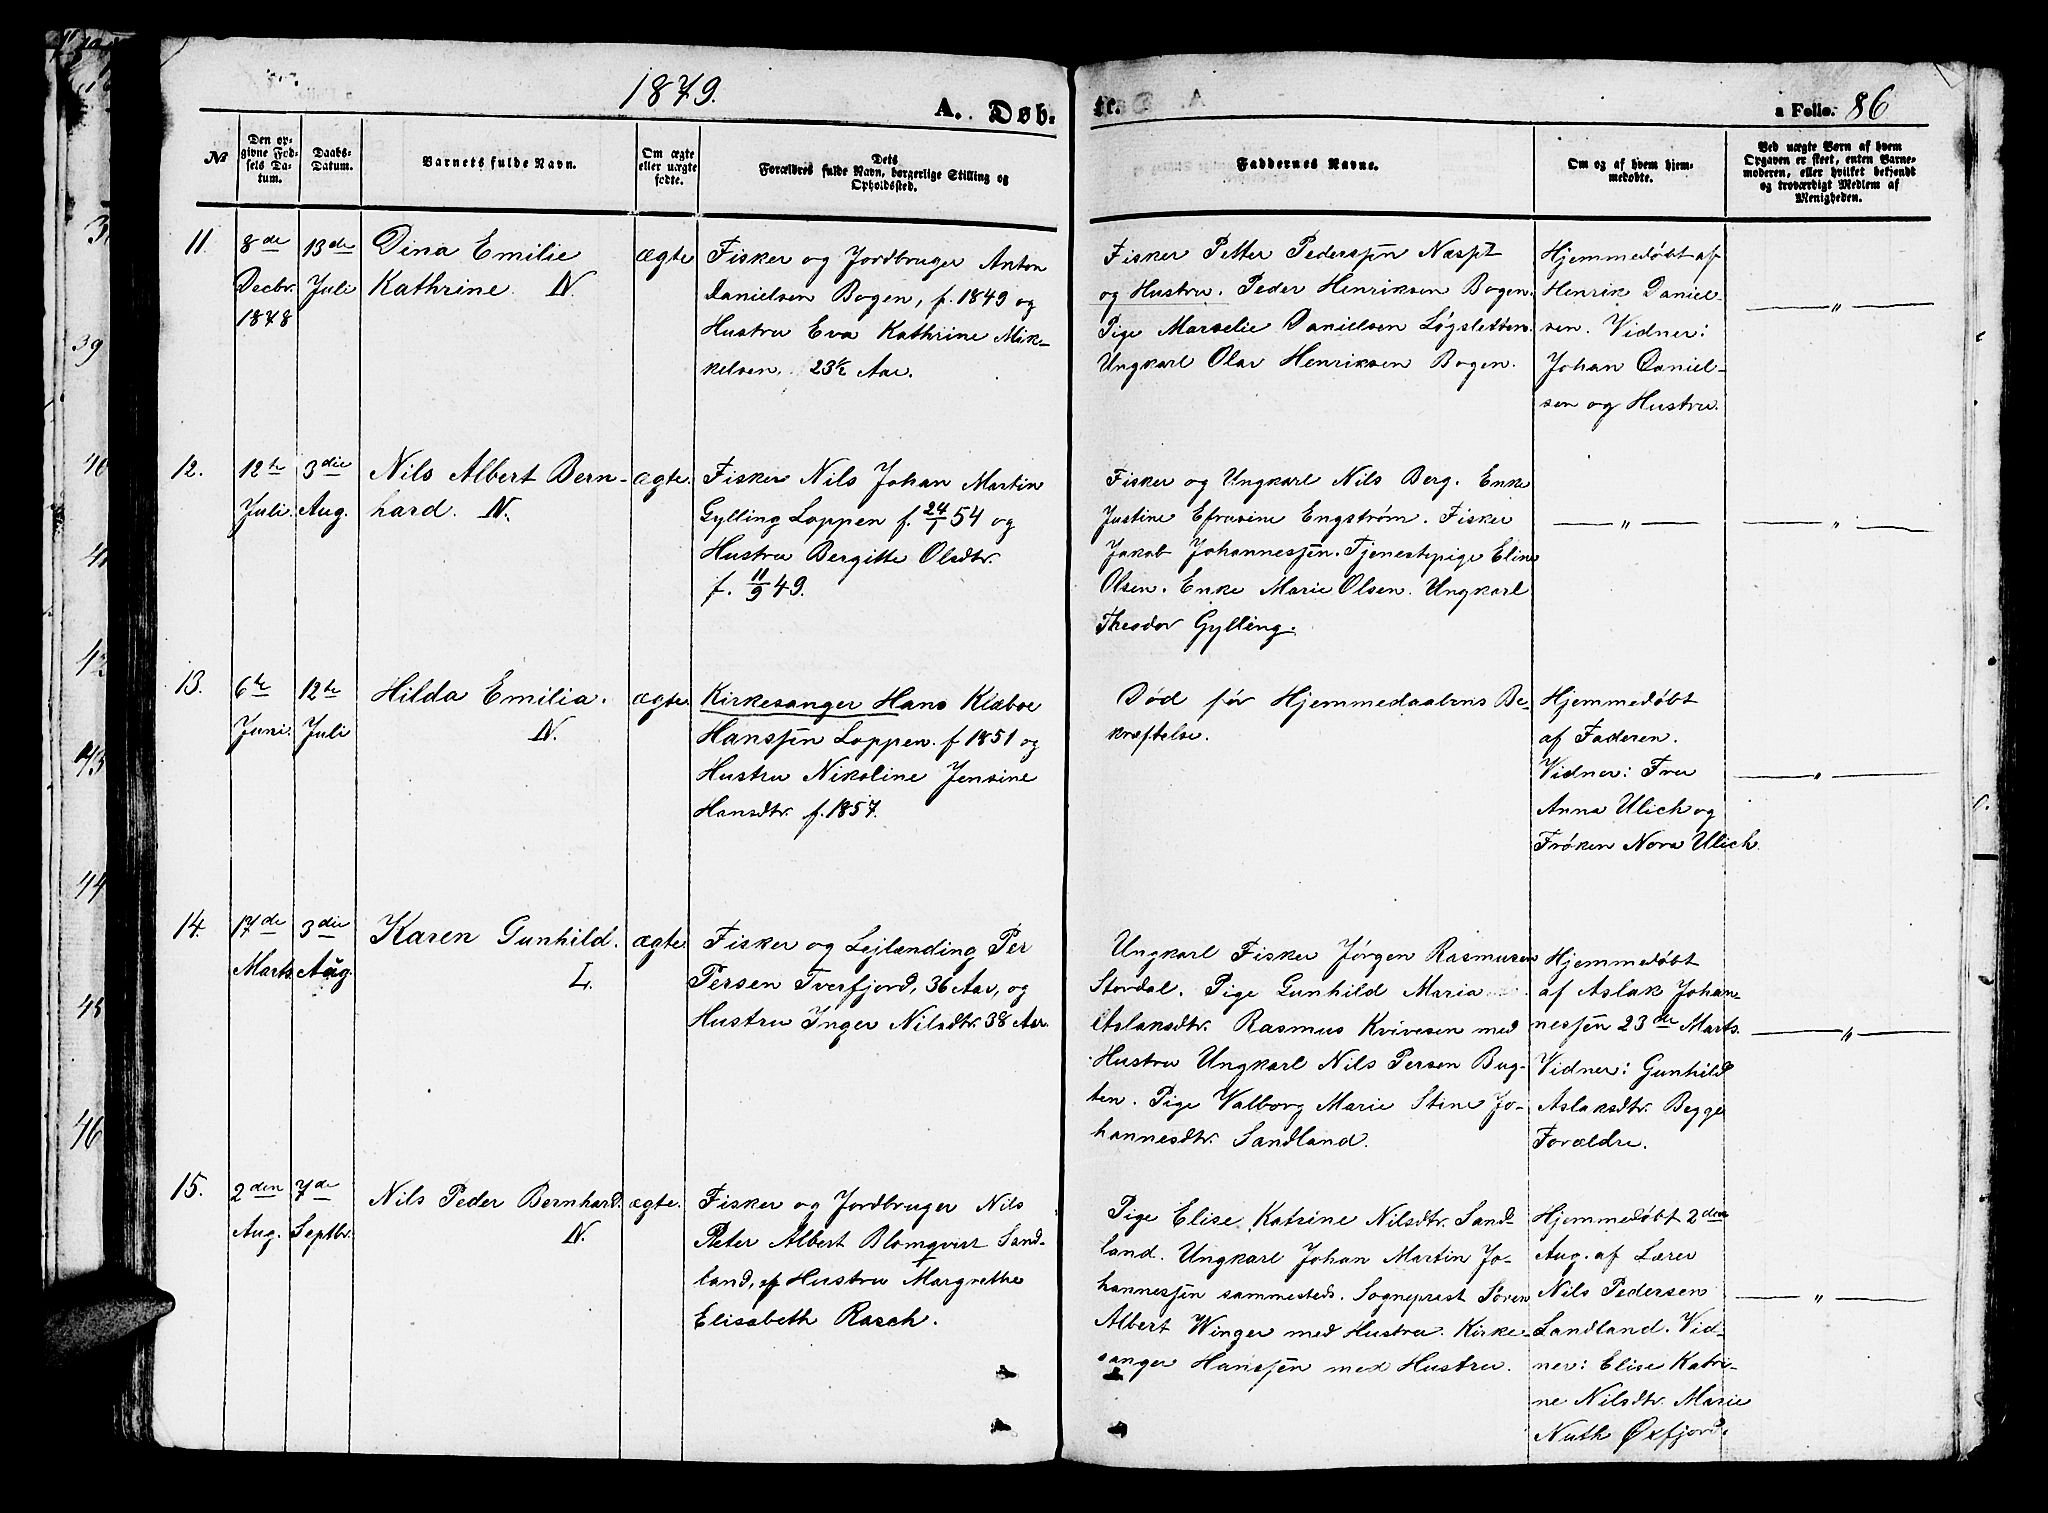 1879.
A. Døb-
te.
a Folio. 86
№
Den op-
givne Fød-
sels Da-
tum.
Daabs-
Datum.
Barnets fulde Navn.
Om ægte
eller uægte
fødte.
Dets
Forældres fulde Navn, borgerlige Stilling og
Opholdssted.
Faddernes Navne.
Om og af hvem hjem-
medøbte.
Ved uægte Børn af hvem
Opgaven er skeet, enten Barne-
moderen, eller hvilket bekjendt
og troværdigt Medlem af
Menigheden.
11.
8de
Decbr.
1878
13de
Juli
Dina Emilie
Kathrine. N.
ægte
Fisker og Jordbruger Anton
Danielsen Bogen, f. 1849 og
Hustru Eva Kathrine Mik-
kelsen. 23½ Aar.
Fisker Petter Pederssen
og Hustru. Peder Henriksen Bogen.
Pige Marselie Danielsen Løgsletten.
Ungkarl Olav Henriksen Bogen.
Hjemmedøbt af
Henrik Daniel-
sen. Vidner:
Johan Daniel-
sen og Hustru.
— „ —
12.
12te
Juli.
3die
Aug.
Nils Albert Bern-
hard. N.
ægte.
Fisker Nils Johan Martin
Gylling Loppen f. 24/1 54 og
Hustru Bergitte Olsdtr.
f. 11/9 49.
Fisker og Ungkarl Nils Berg. Enke
Justine Efrosine Engstrøm. Fisker
Jakob Johannessen. Tjenestepige Eline
Olsen. Enke Marie Olsen. Ungkarl
Theodor Gylling.
— „ —
— „ —
13.
6te
Juni.
12te
Juli
Hilda Emilia.
N.
ægte
Kirkesanger Hans Klæboe
Hanssen Loppen. f 1851 og
Hustru Nikoline Jensine
Hansdtr. f. 1857.
Død før Hjemmedaabens Be-
kræftelse.
Hjemmedøbt
af Faderen.
Vidner: Fru
Anna Ulich og
Frøken Nora Ulich.
— „ —
14.
17de
Marts
3die
Aug.
Karen Gunhild.
L.
ægte
Fisker og Lejlending Per
Persen Tverfjord, 36 Aar, og
Hustru Inger Nilsdtr. 38 Aar.
Ungkarl Fisker Jørgen Rasmusen
Stordal. Pige Gunhild Maria
Aslaksdtr. Rasmus Kvivesen med
Hustru Ungkarl Nils Persen Bug-
ten. Pige Valborg Marie Stine Jo-
hannesdtr. Sandland.
Hjemmedøbt
af Aslak Johan-
nessen 23de Marts.
Vidner: Gunhild
Aslaksdtr. Begge
Forældre.
— „ —
15.
2den
Aug.
7de
Septbr.
Nils Peder Bernhard.
N.
ægte.
Fisker og Jordbruger Nils
Peter Albert Blomqvist Sand-
land, og Hustru Margrethe
Elisabeth Rasch.
Pige Elise Katrine Nilsdtr. Sand-
land. Ungkarl Johan Martin Jo-
hannessen sammesteds. Sogneprest Søren
Albert Winger med Hustru. Kirke-
sanger Hanssen med Hustru.
Hjemmedøbt 2den
Aug. af Lærer
Nils Pedersen
Sandland. Vid-
ner: Elise Katri-
ne Nilsdtr. Marie
Nuth Øxfjord.
— „ —
39
40
41
42
43
44
45
46